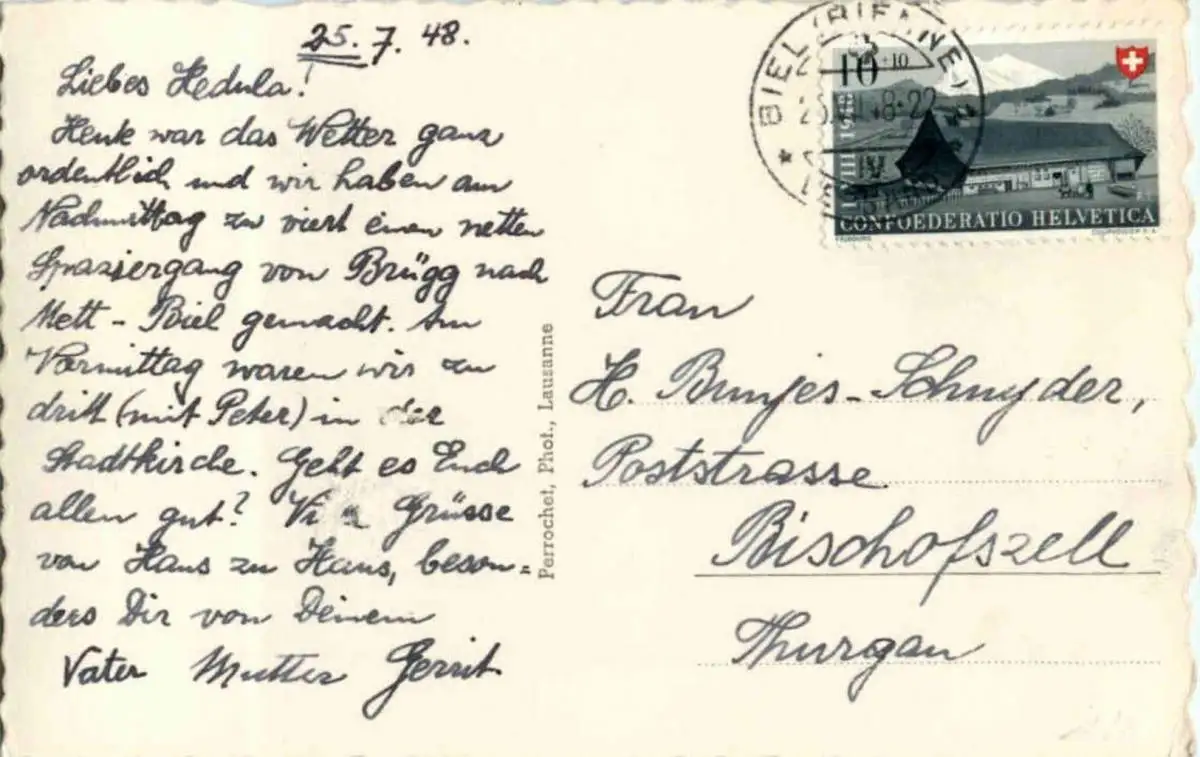 25. 7. 48.
Liebes Hedula!
Heute war das Wetter ganz
ordentlich und wir haben am
Nachmittag zu viert einen netten
Spaziergang von Brügg nach
Mett - Biel gemacht. Am
Vormittag waren wir zu
dritt (mit Peter) in der
Stadtkirche. Geht es Euch
allen gut? Grüsse
von Haus zu Haus, beson=
ders Dir von Deinem
Vater Mutter Gerrit.
Perrochet, Phot., Lausanne
BIEL (BIENNE)
10 +10
CONFOEDERATIO HELVETICA
Frau
H. Bunjes-Schnyder,
Poststrasse
Bischofszell
Thurgau